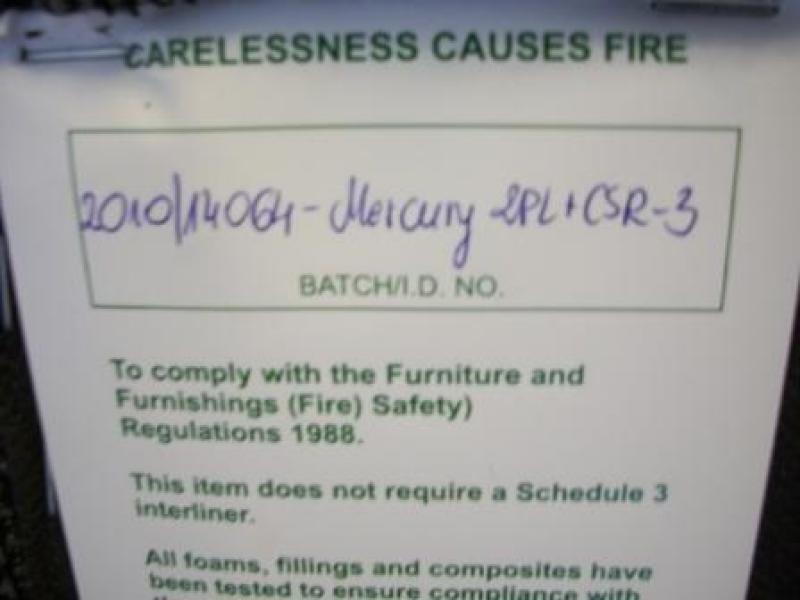 CARELESSNESS CAUSES FIRE
2010/14064 - Mercury 2PL + CSR-3
BATCH/I.D. NO.
To comply with the Furniture and
Furnishings (Fire) Safety)
Regulations 1988.
This item does not require a Schedule 3
interliner.
All foams, fillings and composites have
been tested to ensure compliance with